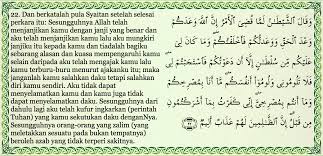 22. Dan berkatalah pula Syaitan setelah selesai
perkara itu: Sesungguhnya Allah telah
menjanjikan kamu dengan janji yang benar dan
aku telah menjanjikan kamu lalu aku mungkiri
janjiku itu kepada kamu dan tiadalah bagiku
sebarang alasan dan kuasa mempengaruhi kamu
selain daripada aku telah mengajak kamu lalu
kamu terburu-buru menurut ajakanku itu; maka
janganlah kamu salahkan daku tetapi salahkan
diri kamu sendiri. Aku tidak dapat
menyelamatkan kamu dan kamu juga tidak
dapat menyelamatkan daku. Sesungguhnya dari
dahulu lagi aku telah kufur ingkarkan (perintah
Tuhan) yang kamu sekutukan daku denganNya.
Sesungguhnya orang-orang yang zalim (yang
meletakkan sesuatu pada bukan tempatnya)
beroleh azab yang tidak terperi sakitnya.
وَقَالَ ٱلشَّيْطَٰنُ لَمَّا قُضِيَ ٱلْأَمْرُ إِنَّ ٱللَّهَ وَعَدَكُمْ
وَعْدَ ٱلْحَقِّ وَوَعَدتُّكُمْ فَأَخْلَفْتُكُمْ وَمَا كَانَ لِيَ
عَلَيْكُم مِّن سُلْطَٰنٍ إِلَّآ أَن دَعَوْتُكُمْ فَٱسْتَجَبْتُمْ لِي
فَلَا تَلُومُونِي وَلُومُوٓا۟ أَنفُسَكُم مَّآ أَنَا۠ بِمُصْرِخِكُمْ
وَمَآ أَنتُم بِمُصْرِخِيَّ إِنِّي كَفَرْتُ بِمَآ أَشْرَكْتُمُونِ
مِن قَبْلُ إِنَّ ٱلظَّٰلِمِينَ لَهُمْ عَذَابٌ أَلِيمٌ ٢٢